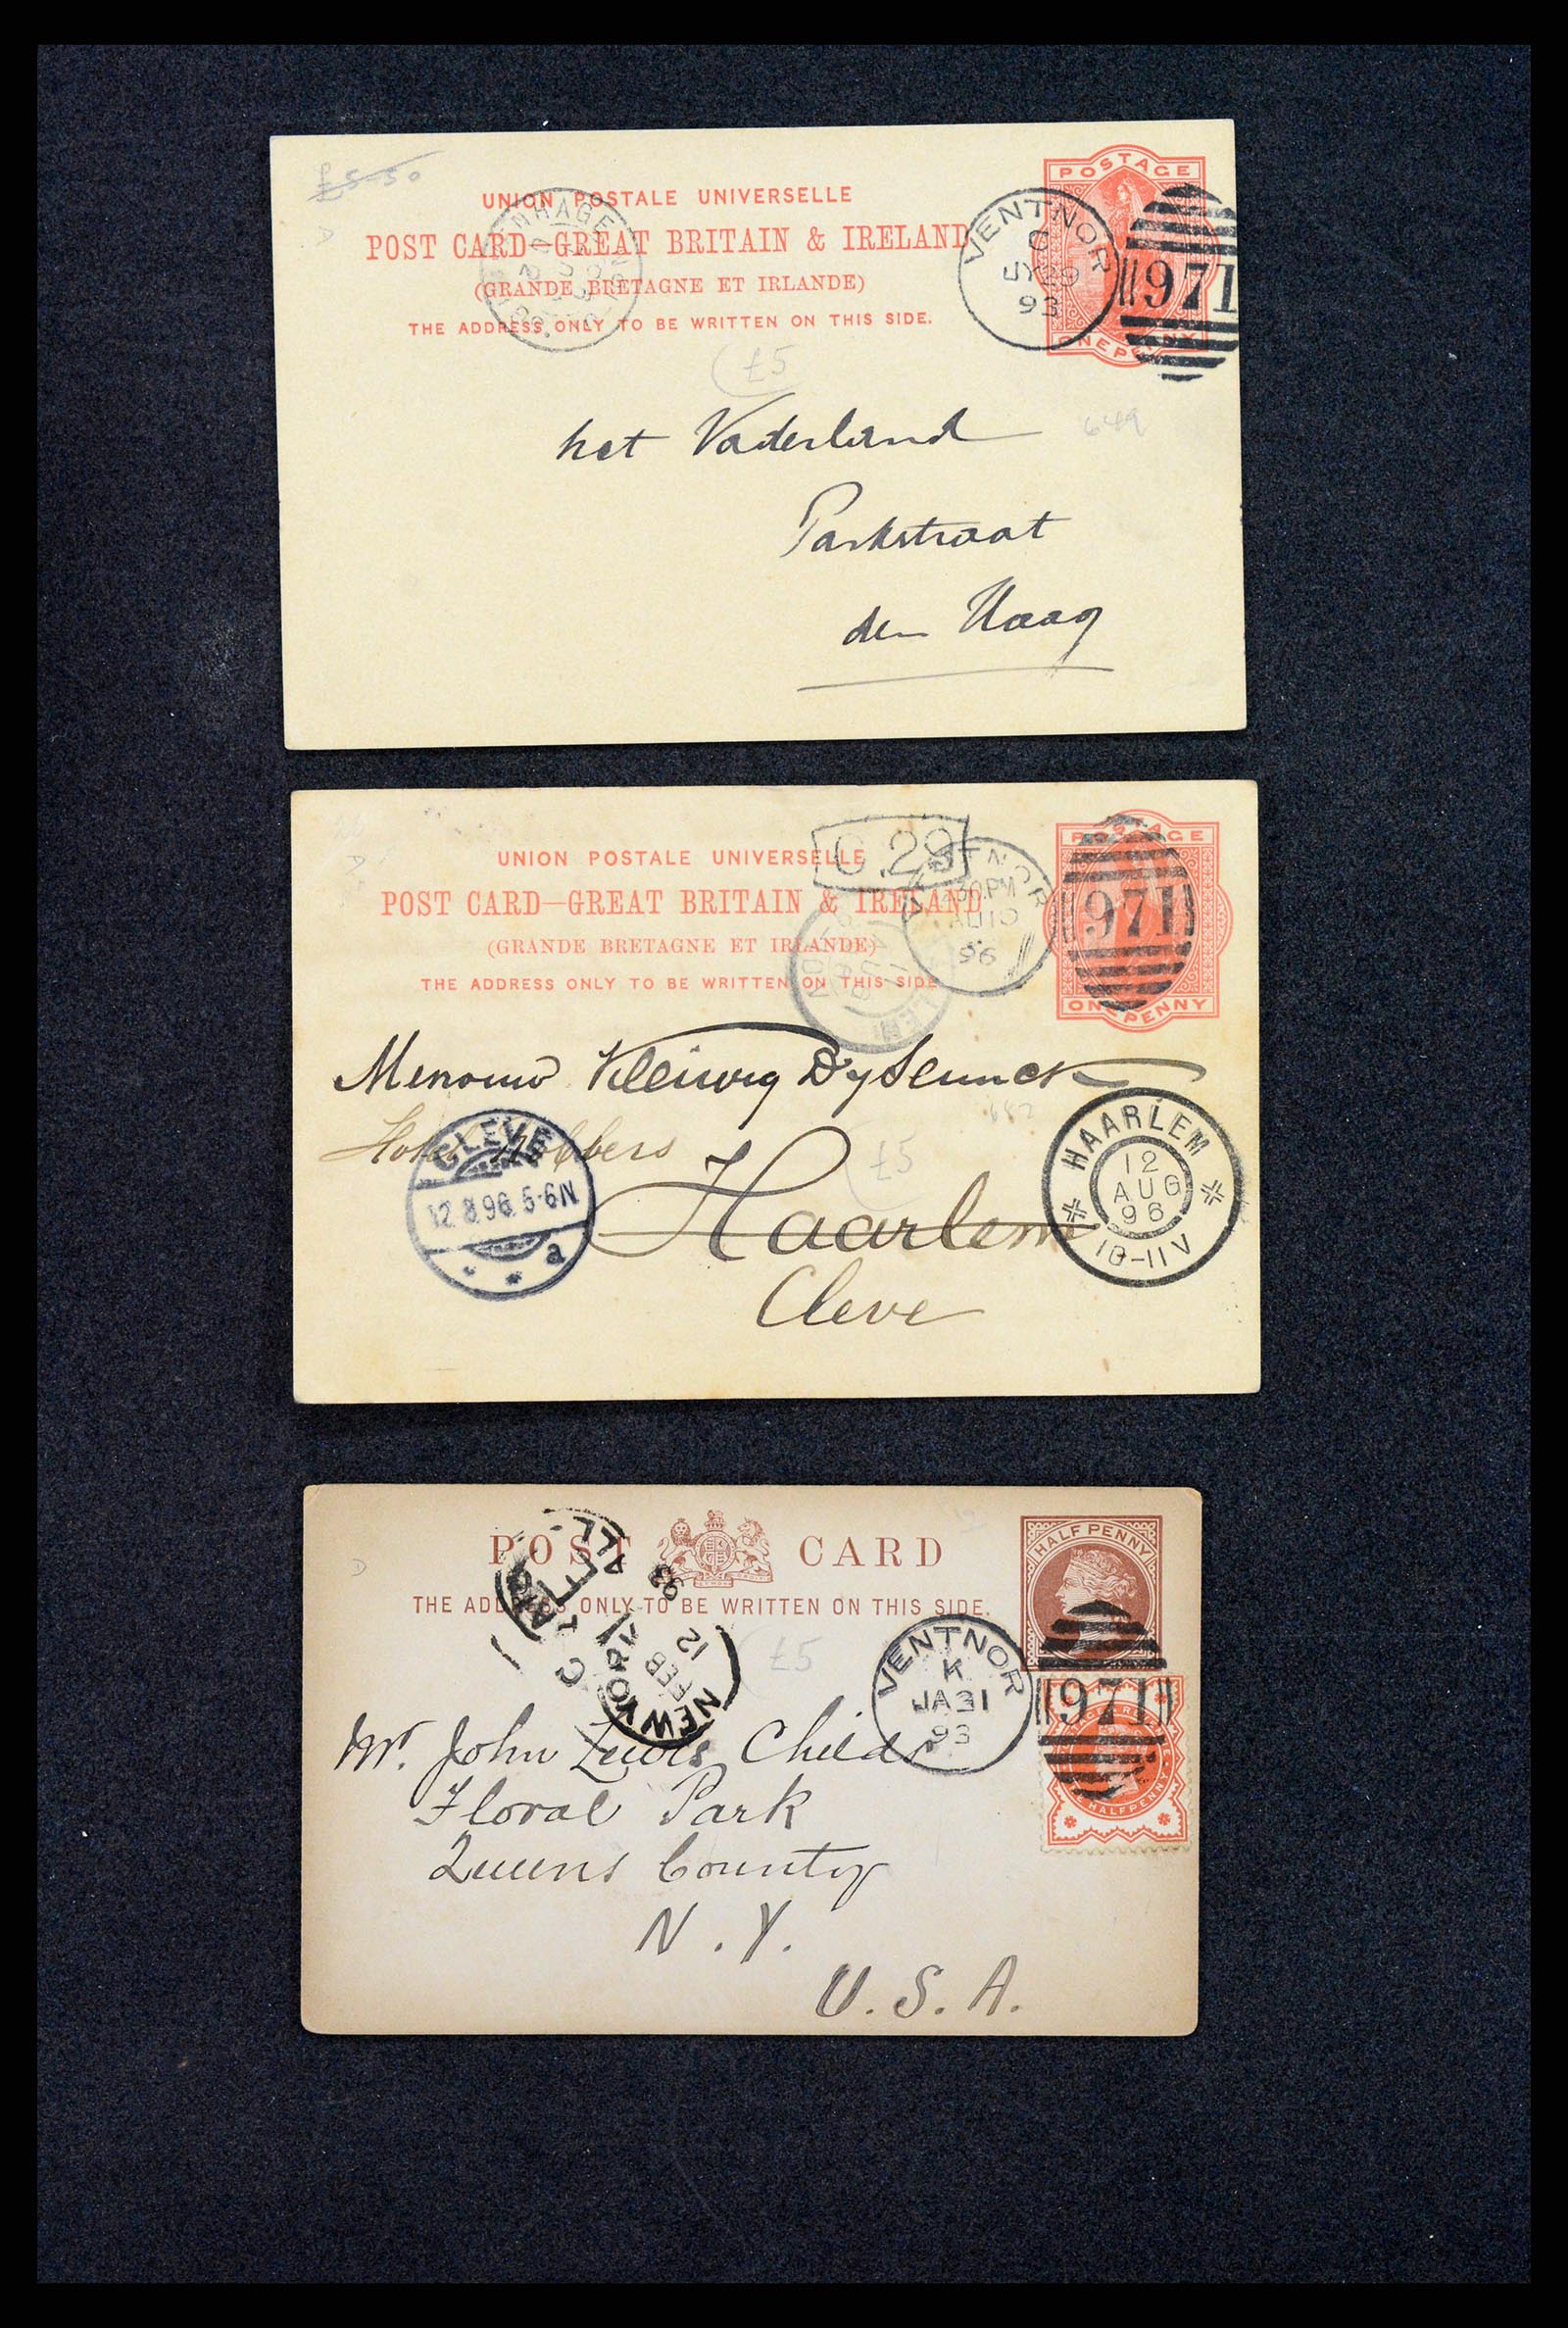 £5-50
UNION POSTALE UNIVERSELLE
POST CARD—GREAT BRITAIN & IRELAND
(GRANDE BRETAGNE ET IRLANDE)
THE ADDRESS ONLY TO BE WRITTEN ON THIS SIDE.
POSTAGE
ONE PENNY
VENTNOR
93
971
£5
649
het Vaderland
Parkstraat
den Haag
UNION POSTALE UNIVERSELLE
POST CARD—GREAT BRITAIN & IRELAND
(GRANDE BRETAGNE ET IRLANDE)
THE ADDRESS ONLY TO BE WRITTEN ON THIS SIDE
C.29
VENTNOR
.30.PM
AU 10
96
POSTAGE
ONE PENNY
971
Hotel
£5
682
Haarlem
Cleve
CLEVE
12.8.96.5-6N
a
HAARLEM
12
AUG
96
10-11V
POST CARD
THE ADDRESS ONLY TO BE WRITTEN ON THIS SIDE.
HALFPENNY
ALL
NEW YORK
FEB
12
93
£5
VENTNOR
K
JA 31
93
971
HALFPENNY
Mr. John Lewis Childs
Floral Park
Queens County
N.Y.
U.S.A.